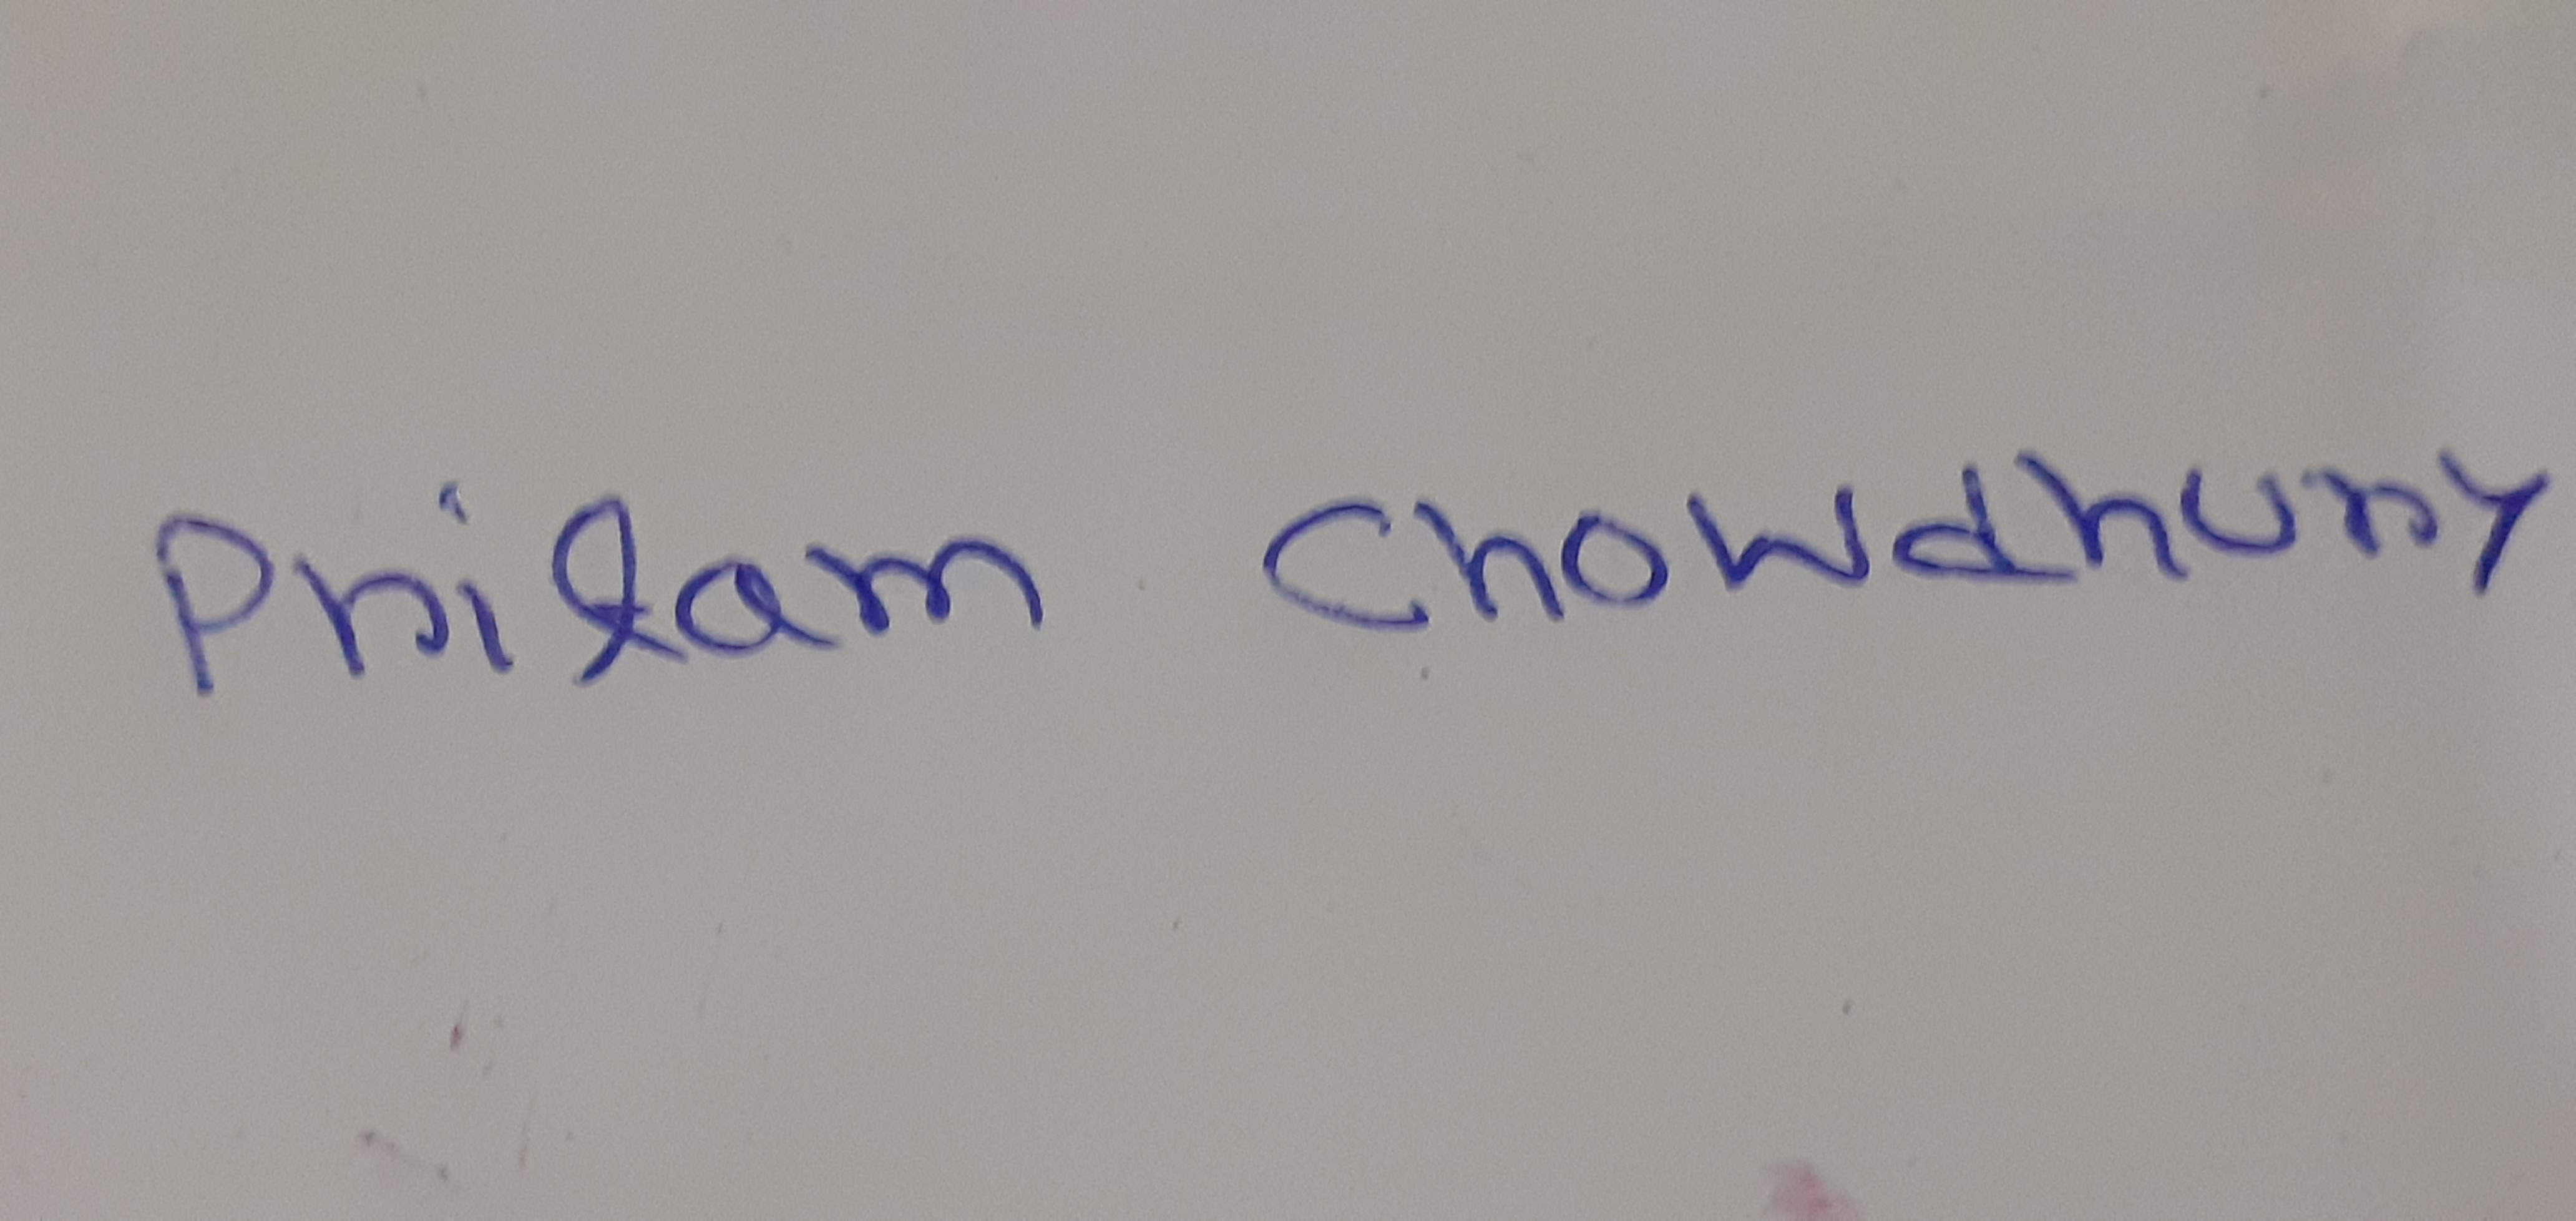 Pritam Chowdhury